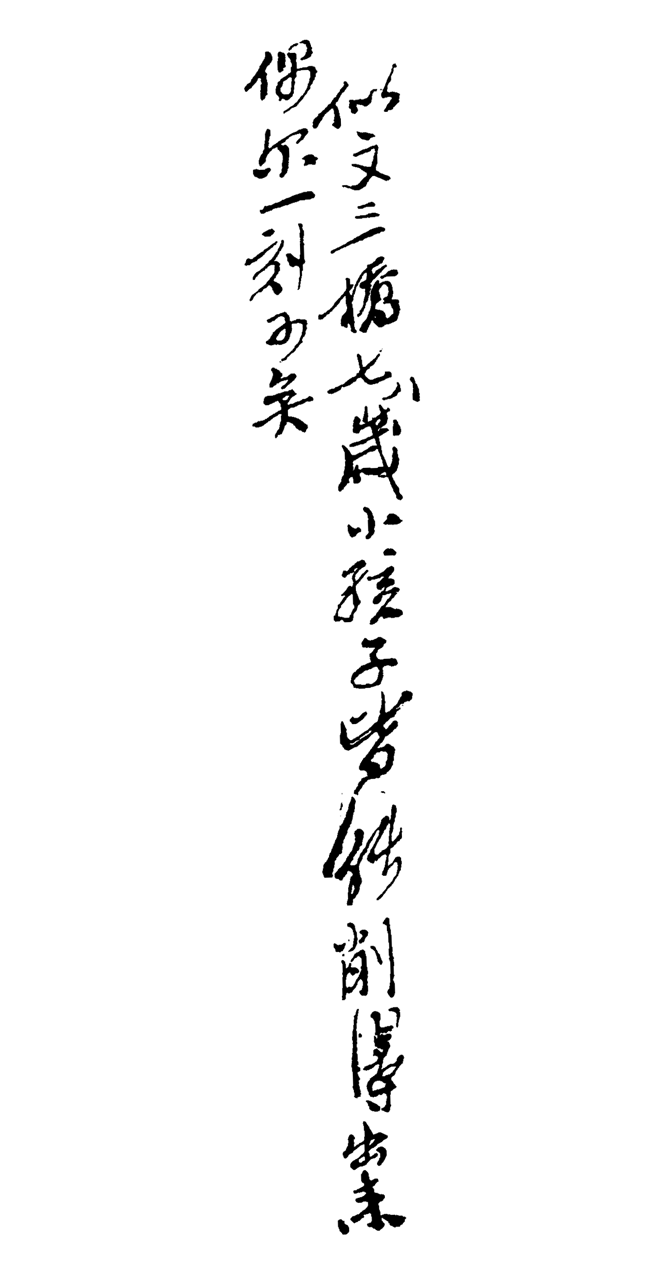 似文三橋七八歲小孩子皆能削得出来
偶尔一刻可矣